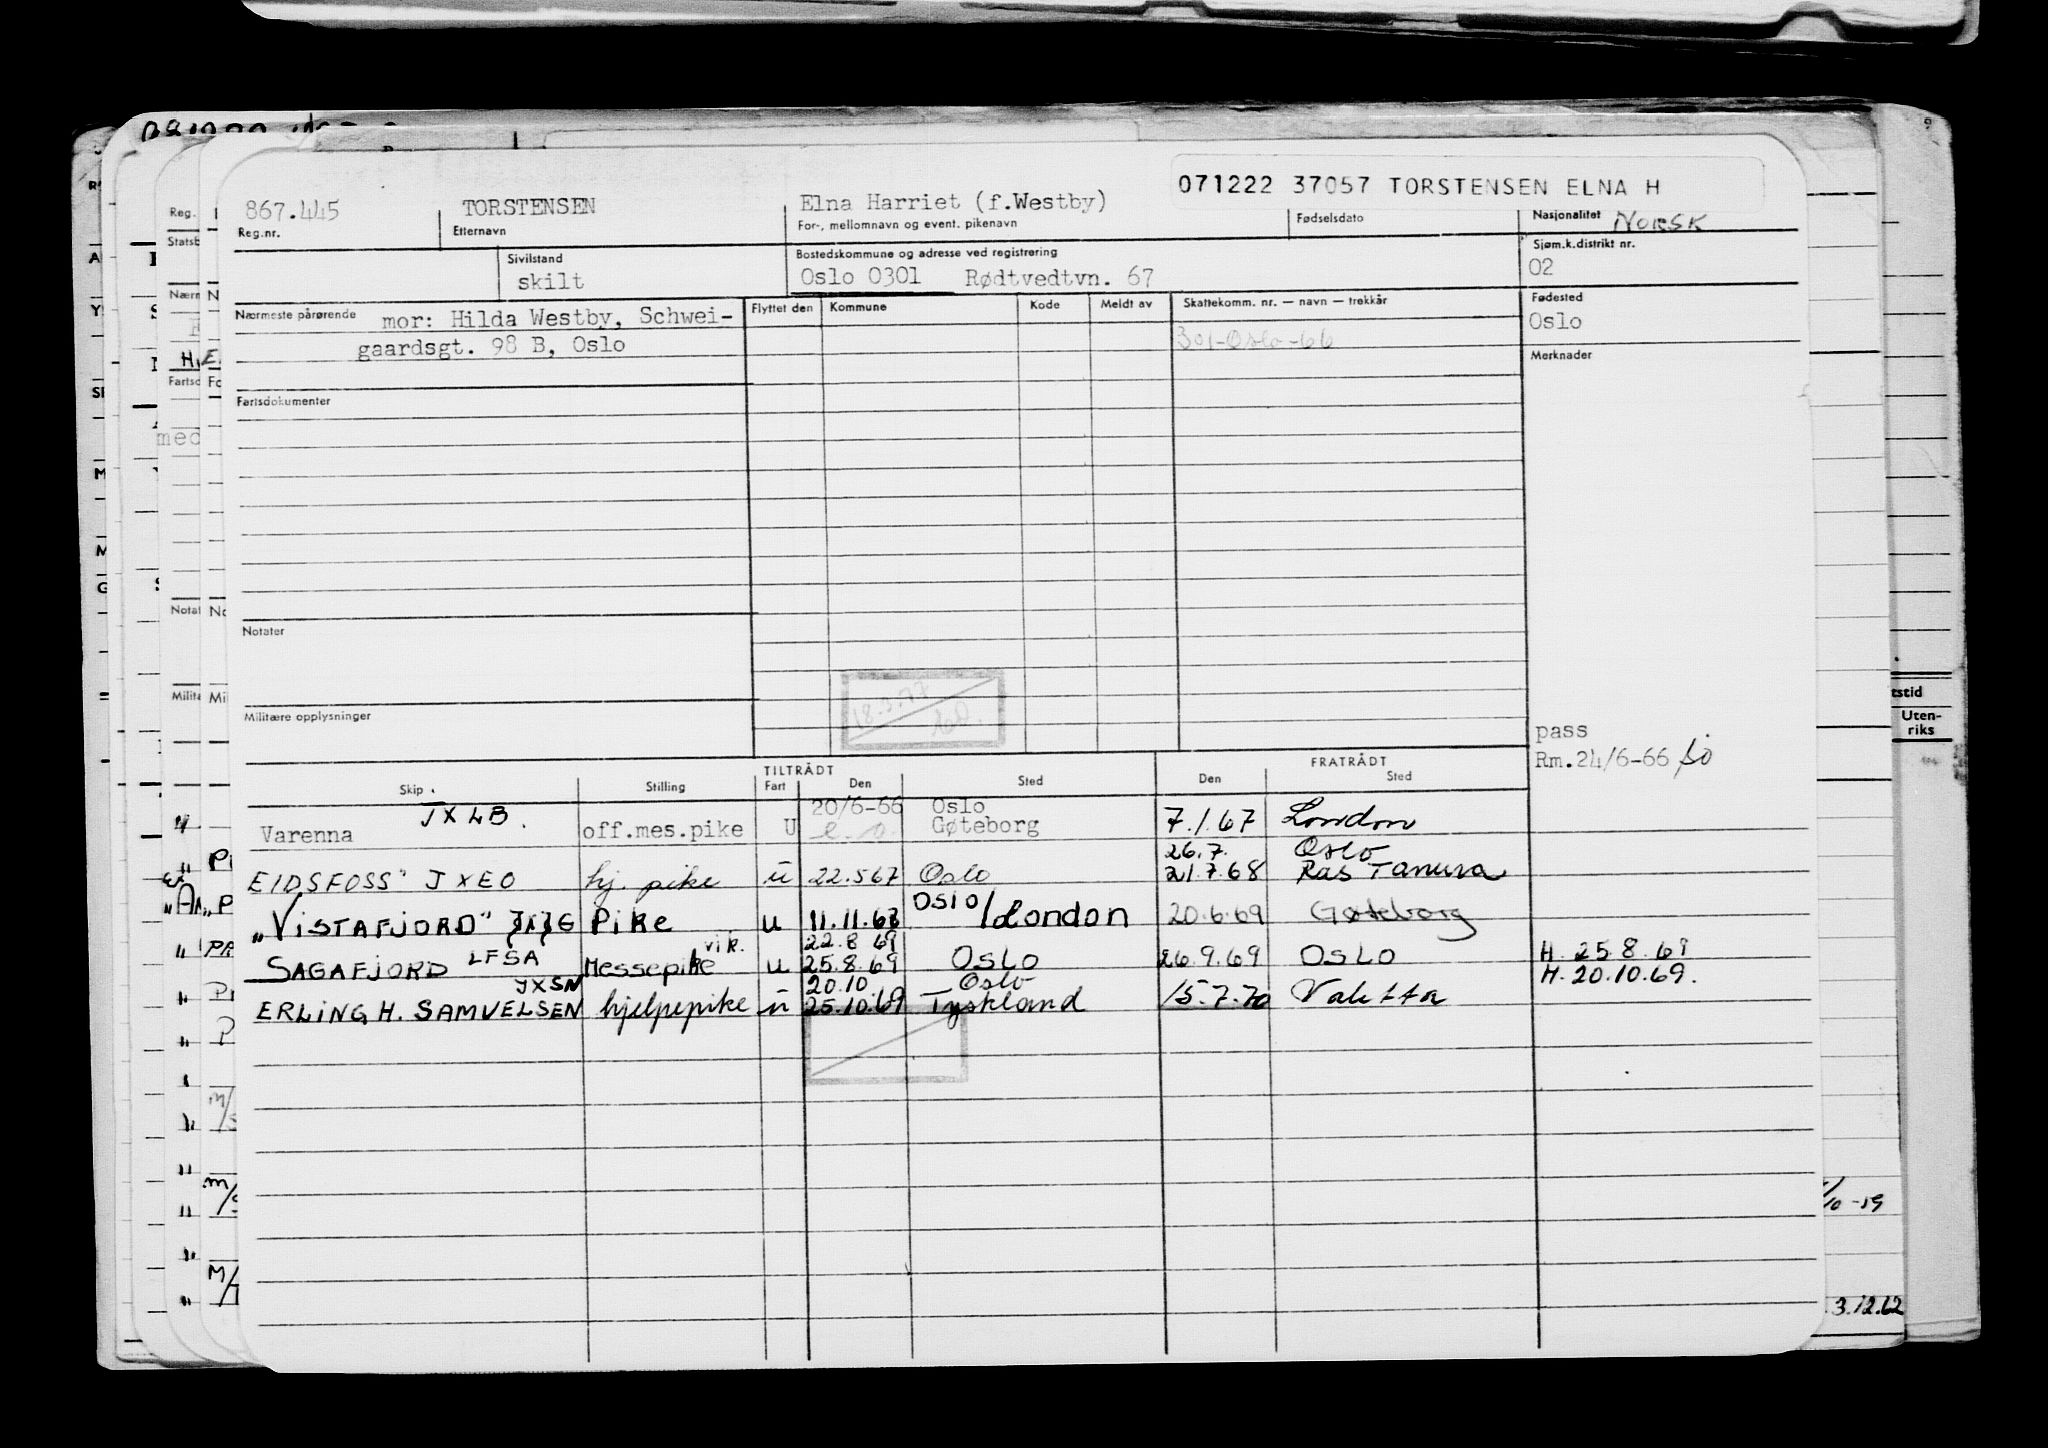 071222 37057 TORSTENSEN ELNA H
867.445 TORSTENSEN Elna Harriet (f.Westby)
Reg.nr. Etternavn For-, mellomnavn og event. pikenavn Fødselsdato Nasjonalitet NORSK
Sivilstand Bostedskommune og adresse ved registrering Sjøm.k.distrikt nr.
skilt Oslo 0301 Rødtvedtvn. 67 02
Nærmeste pårørende mor: Hilda Westby, Schwei- Flyttet den Kommune Kode Meldt av Skattekomm. nr. — navn — trekkår Fødested
gaardsgt. 98 B, Oslo 301-Oslo-66 Oslo
Merknader
Fartsdokumenter
Notater
18.3.77
Militære opplysninger
pass
Rm. 24/6-66
TILTRÅDT FRATRÅDT
Skip Stilling Fart Den Sted Den Sted
JXLB 20/6-66 Oslo
Varenna off.mes.pike U Gøteborg 7.1.67 London
26.7. Oslo
EIDSFOSS" JXEO hj. pike u 22.5 67 Oslo 21.7.68 Ras Tanura
OSLO
"VISTAFJORD" Pike u 11.11.68 /London 20.6.69 Gøteborg
vik. 22.8 69
SAGAFJORD LFSA Messepike u 25.8.69 OSLO 26.9.69 OSLO H. 25.8.69
JXSN 20.10 Oslo H. 20.10.69.
ERLING H. SAMUELSEN hjelpepike u 25.10.69 Tyskland 15.7.70 Valetta
tstid
Uten-
riks
3.12.62